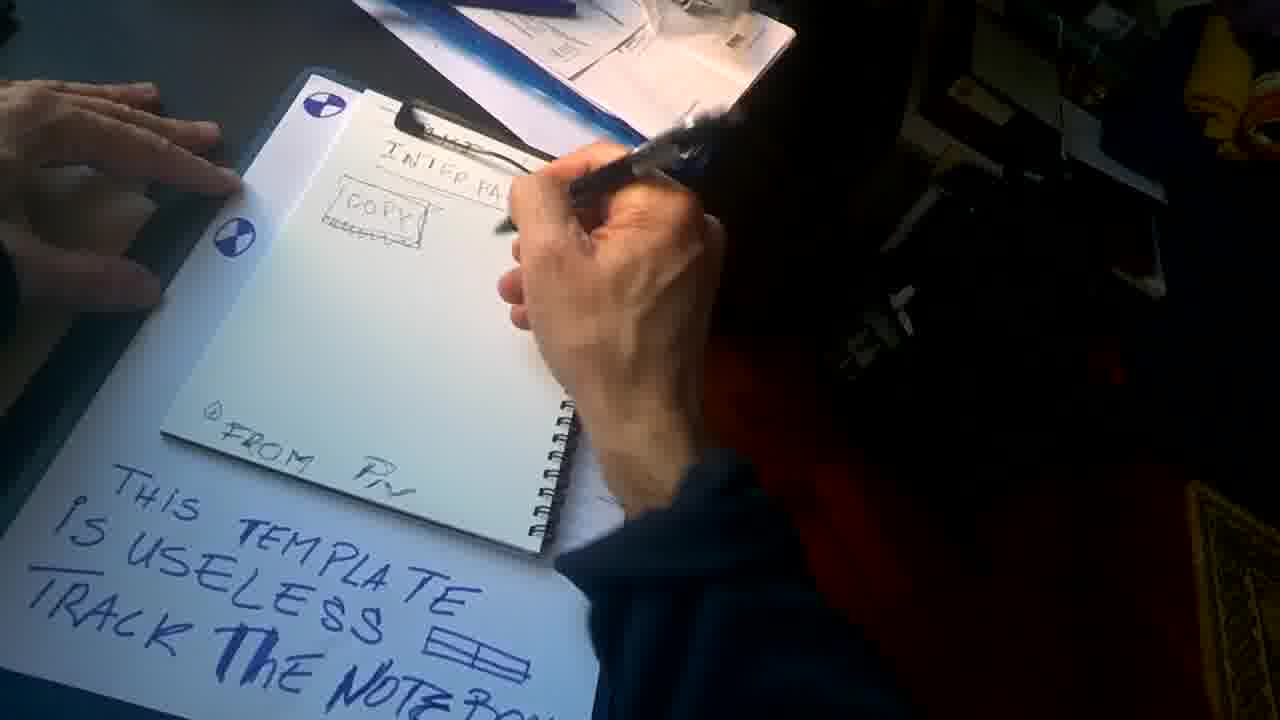 INTER PA
COPY
FROM
THIS TEMPLATE
iS USELESS
TRACK THE NOTEBO